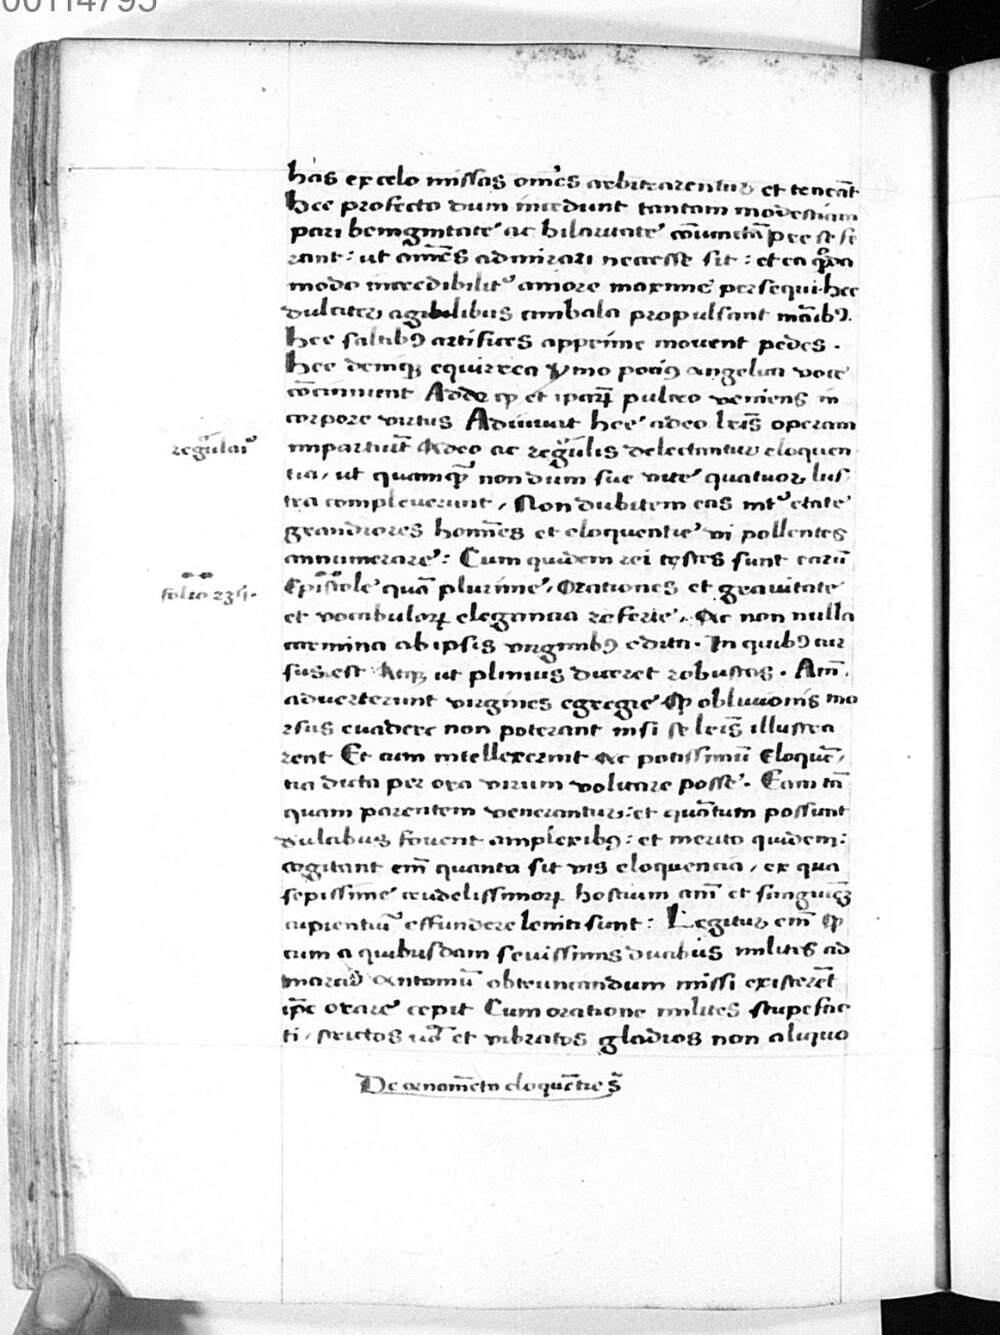 00114795
has ex celo missas om̄es arbitrarentur et teneāt
hee profecto dum incedunt tantam modestiam
pari benignitate ac hilaritate cōiunctā pre se fe
rant: ut om̄es admirari necesse sit: et ea q̄dā
modo incredibilit᷑ amore maxime persequi. hee
dulciter agibilibus cimbala propulsant māibꝫ.
hee saltibꝫ artifices apprime mouent pedes.
hee demiqꝫ equirrea ymo pociꝰ angelica voce
cōcinnent Addo qꝫ et ipaꝝ pulcro veniens in
corpore virtus Adiuuat hee adeo lr̄is operam
impartiūt Adeo ac regūlis delectantur eloquen
regūlaꝝ
tia, ut quamqꝫ nondum sue vite quatuor lus
tra compleuerunt, Non dubitem eas int᷑ etate
grandiores homīes et eloquentie vi pollentes
annumerare: Cum quidem rei testes sunt earū
Epistole quā plurime, Orationes et grauitate
folio 235.
et vocabuloꝝ elegancia referte, Ac non nulla
carmina ab ipsis virginibꝫ edita. In quibꝫ cur
sus est Atqꝫ ut plinius diceret robustos. Am̄.
aduerterunt virgines egregie qꝫ obliuionis mo
rsus euadere non poterant nisi se lr̄is illustra
rent Et cum intellexerint Ac potissimū Eloquē,
tia dicta per ora virum volitare posse. Eam tā
quam parentem venerantur: et quātum possunt
dulcibus fouent amplexibꝫ: et merito quidem:
cogitant em̄ quanta sit vis eloquencia, ex qua
sepissime crudelissimoꝝ hostium anī et sanguinē
cupientiū effundere leniti sunt: Legitur em̄ qꝫ
cum a quibusdam seuissimis ducibus milites ad
marcū Antoniū obtruncandum missi existerēt
ip̄e orare cepit Cum oratione milites stupefac
ti, strictos iā et vibratos gladios non aliquo
De ornamēto eloquētie